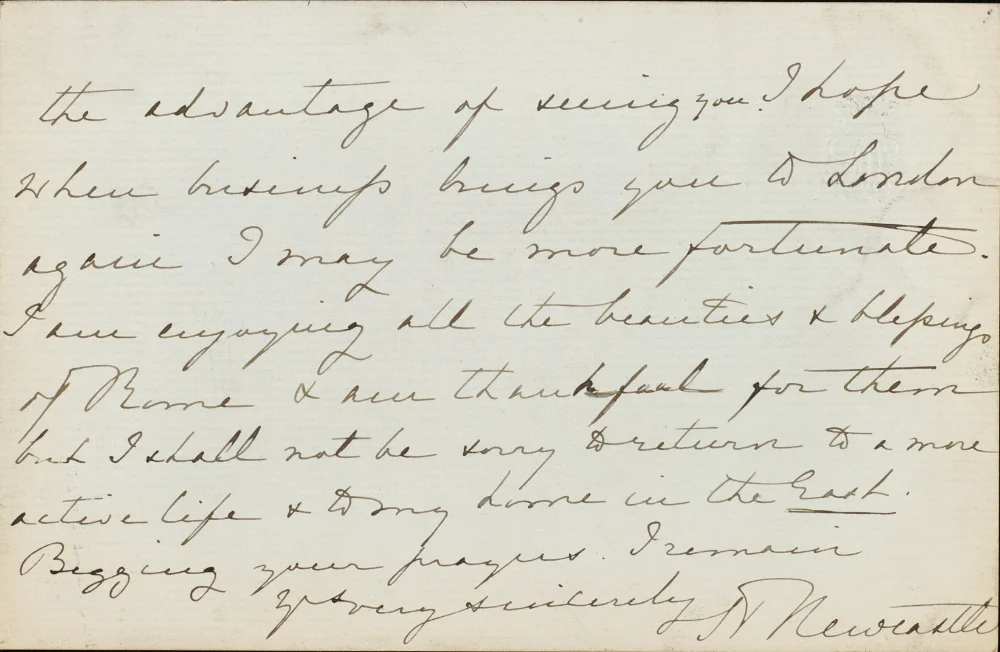 the advantage of seeing you. I hope
when business brings you to London
again I may be more fortunate.
I am enjoying all the beauties & blessings
of Rome & am thankful for them
but I shall not be sorry to return to a more
active life & to my home in the East.
Begging your prayers. I remain
yrs very sincerely
Newcastle